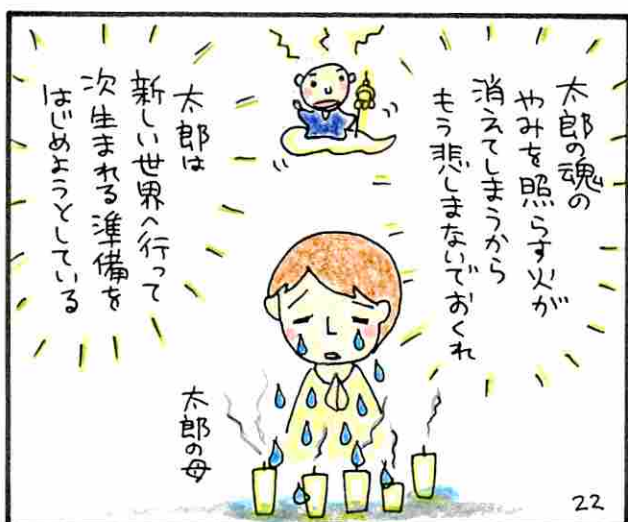 太郎の魂の
やみを照らす火が
消えてしまうから
もう悲しまないでおくれ
太郎は
新しい世界へ行って
次生まれる準備を
はじめようとしている
太郎の母
22